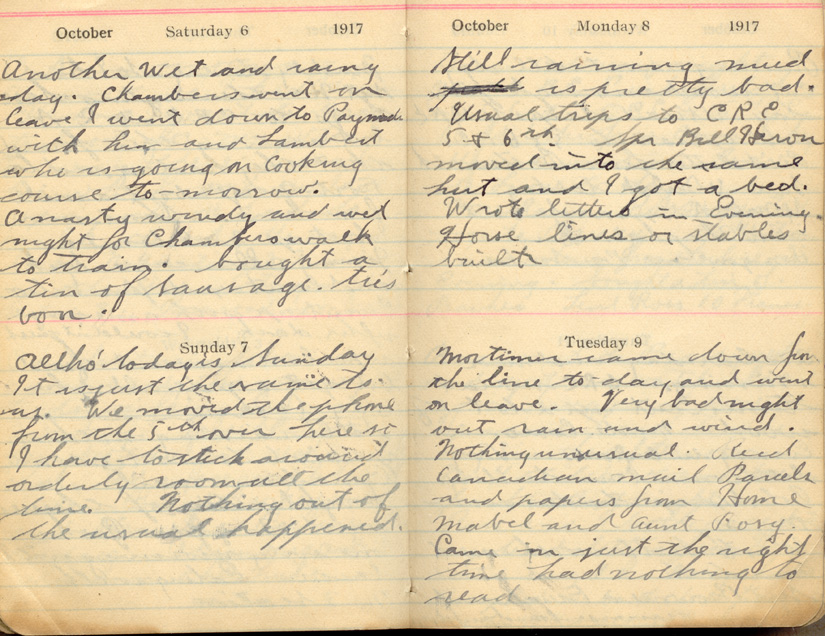 October Saturday 6 1917
Another Wet and rainy
day. Chambers went on
leave I went down to Paymde
with him and Lambert
who is going on Cooking
course to-morrow.
A nasty windy and wet
night for Chambers walk
to train. bought a
tin of sausage. trés
bon.
Sunday 7
Altho' today is Sunday
It is just the same to
us. We moved the phone
from the 5th over here so
I have to stick around
orderly room all the
time. Nothing out of
the usual happened.
October Monday 8 1917
Still raining mud
is pretty bad.
Usual trips to C R E
5 & 6th. Spr Bill Heron
moved into the same
hut and I got a bed.
Wrote letters in Evening.
Horse lines or stables
built
Tuesday 9
Mortimer came down from
the line to day and went
on leave. Very bad night
out rain and wind.
Nothing unusual. Recd
Canadian mail Parcels
and papers from Home
Mabel and Aunt
Came in just the right
time had nothing to
read